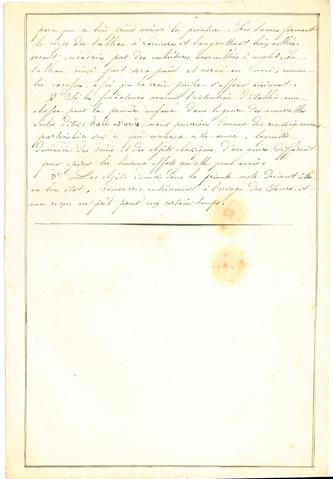 parce que ce bois prend mieux la peinture. Les lames formant
le corps du tableau à rainures et languettes et bien collées
seront encadrées par des emboîtures assemblées à onglet. Le
tableau ainsi fait sera peint et verni en noir, comme
les carafes, afin que la craie puisse s'effacer aisément.
Si les fondateurs avaient l'intention d'établir une
classe pour la première enfance dans le genre des nouvelles
salles d'asile, nous pourrions donner des renseignements
particuliers sur ce qui concerne cette œuvre, laquelle
demande des soins et des objets classiques d'un genre différent
pour opérer les heureux effets qu'elle peut avoir.
Les objets énoncés dans la présente note doivent être
en bon état, consacrés entièrement à l'usage des Sœurs, et
non reçus en prêt pour un certain temps.